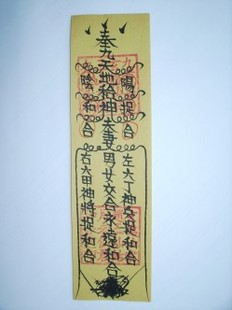 奉九天地給神夫妻男女交合永遠和合
九陽捉合
九陰和合
左六丁神女捉和合
右六甲神將捉和合